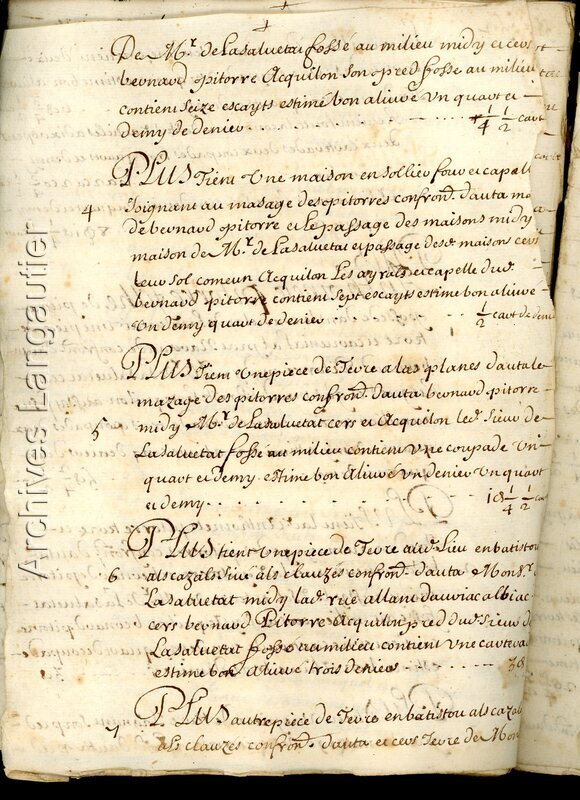 De Mr. de Lasaluetat fossé au milieu midy et cers
bernard pitorre Acquilon son pred fosse au milieu
contient seize escayts estimé bon aliuré Vn quart et
demy de denier . . . . . . . 1/4 1/2 cart
4 PLUS Tient Vne maison en sol lieu four et capelle
Joignant au masage des pitorres confront. d'auta ma
de bernard pitorre et le passage des maisons midy
maison de Mr. de Lasaluetat et passage desd. maisons cers
leur sol comeun Acquilon Les ayrals et capelle dud.
bernard pitorre contient sept escayts estime bon aliure
Vn demy quart de denier . . . . . 1/2 cart de denie
5 PLUS Tient Vne piece de Terre a las planes d'auta le
mazage des pitorres confront. d'auta bernard pitorre
midy Mr. de Lasaluetat cers et Acquilon led. sieur de
Lasaluetat fossé au milieu contient Vne coupade Vn
quart et demy estime bon Aliuré Vn denier Vn quart
et demy . . . . . . . . . 1 d 1/4 1/2 ca
6 PLUS tient Vne piece de Terre aud. Lieu en batistou
als cazals siue als clauzes confront. d'auta Monsr.
Lasaluetat midy lad. rue allant dauviac albiac
cers bernard Pitorre Acquilon pred dud. sieur de
Lasaluetat fosse au milieu contient Vne carterad
estime bon aliuré trois deniers . . . . . 3 d
7 PLUS autre piece de Terre en batistou als cazal
als clauzes confront. d'auta et cers Terre de Mon
Archives Langautier